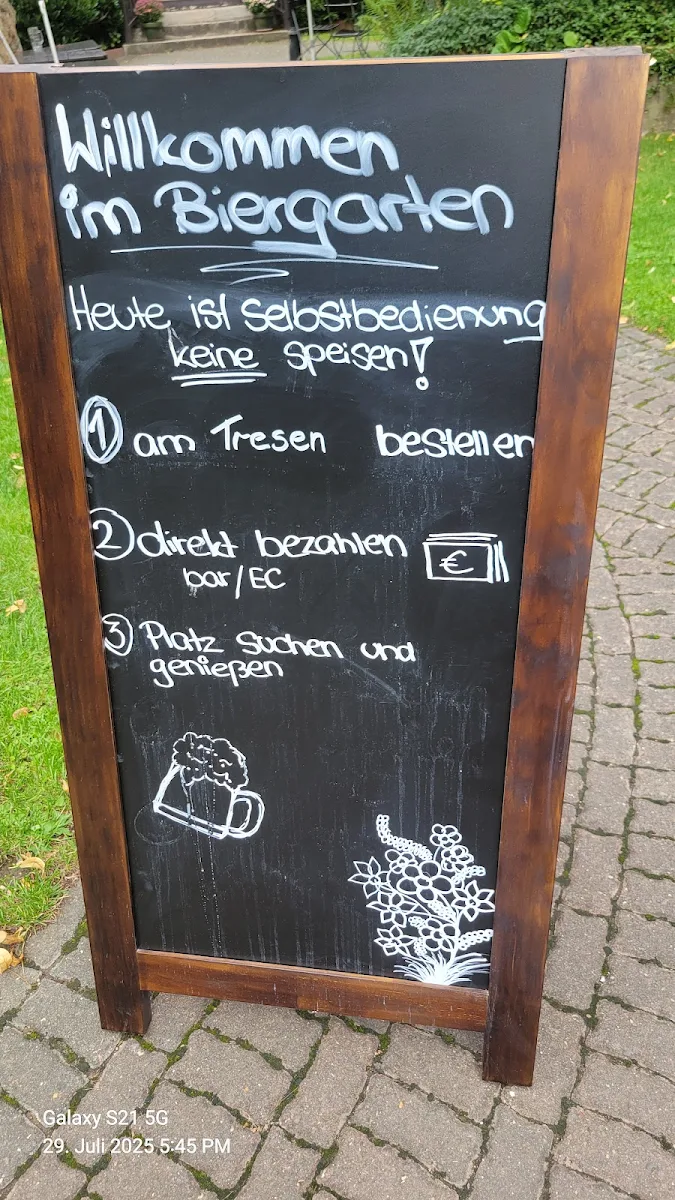 Willkommen
im Biergarten
Heute ist Selbstbedienung
keine speisen!
1 am Tresen bestellen
2 direkt bezahlen €
bar/EC
3 Platz suchen und
genießen
Galaxy S21 5G
29. Juli 2025 5:45 PM